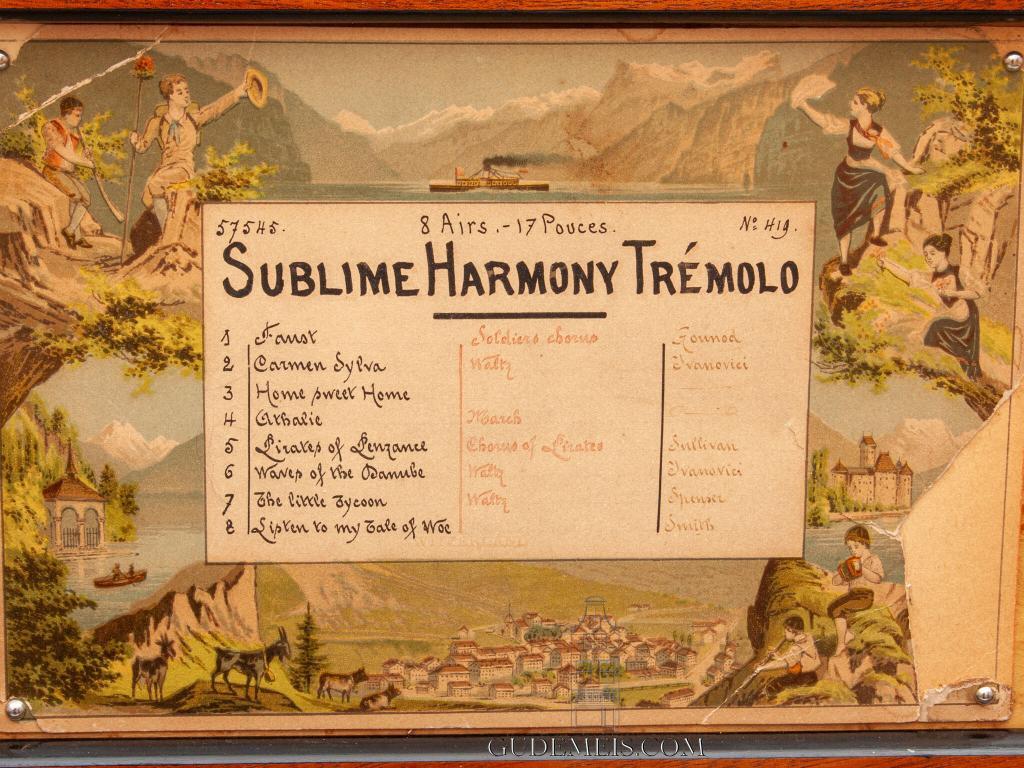 57545. 8 Airs.-17 Pouces. No 419.
SUBLIME HARMONY TRÉMOLO
1 Faust Soldiers chorus Gounod
2 Carmen Sylva Waltz Ivanovici
3 Home sweet Home
4 Athalie March
5 Pirates of Penzance Chorus of Pirates Sullivan
6 Waves of the Danube Waltz Ivanovici
7 The little Tycoon Waltz Spenser
8 Listen to my Tale of Woe Smith
GUDEMEIS.COM